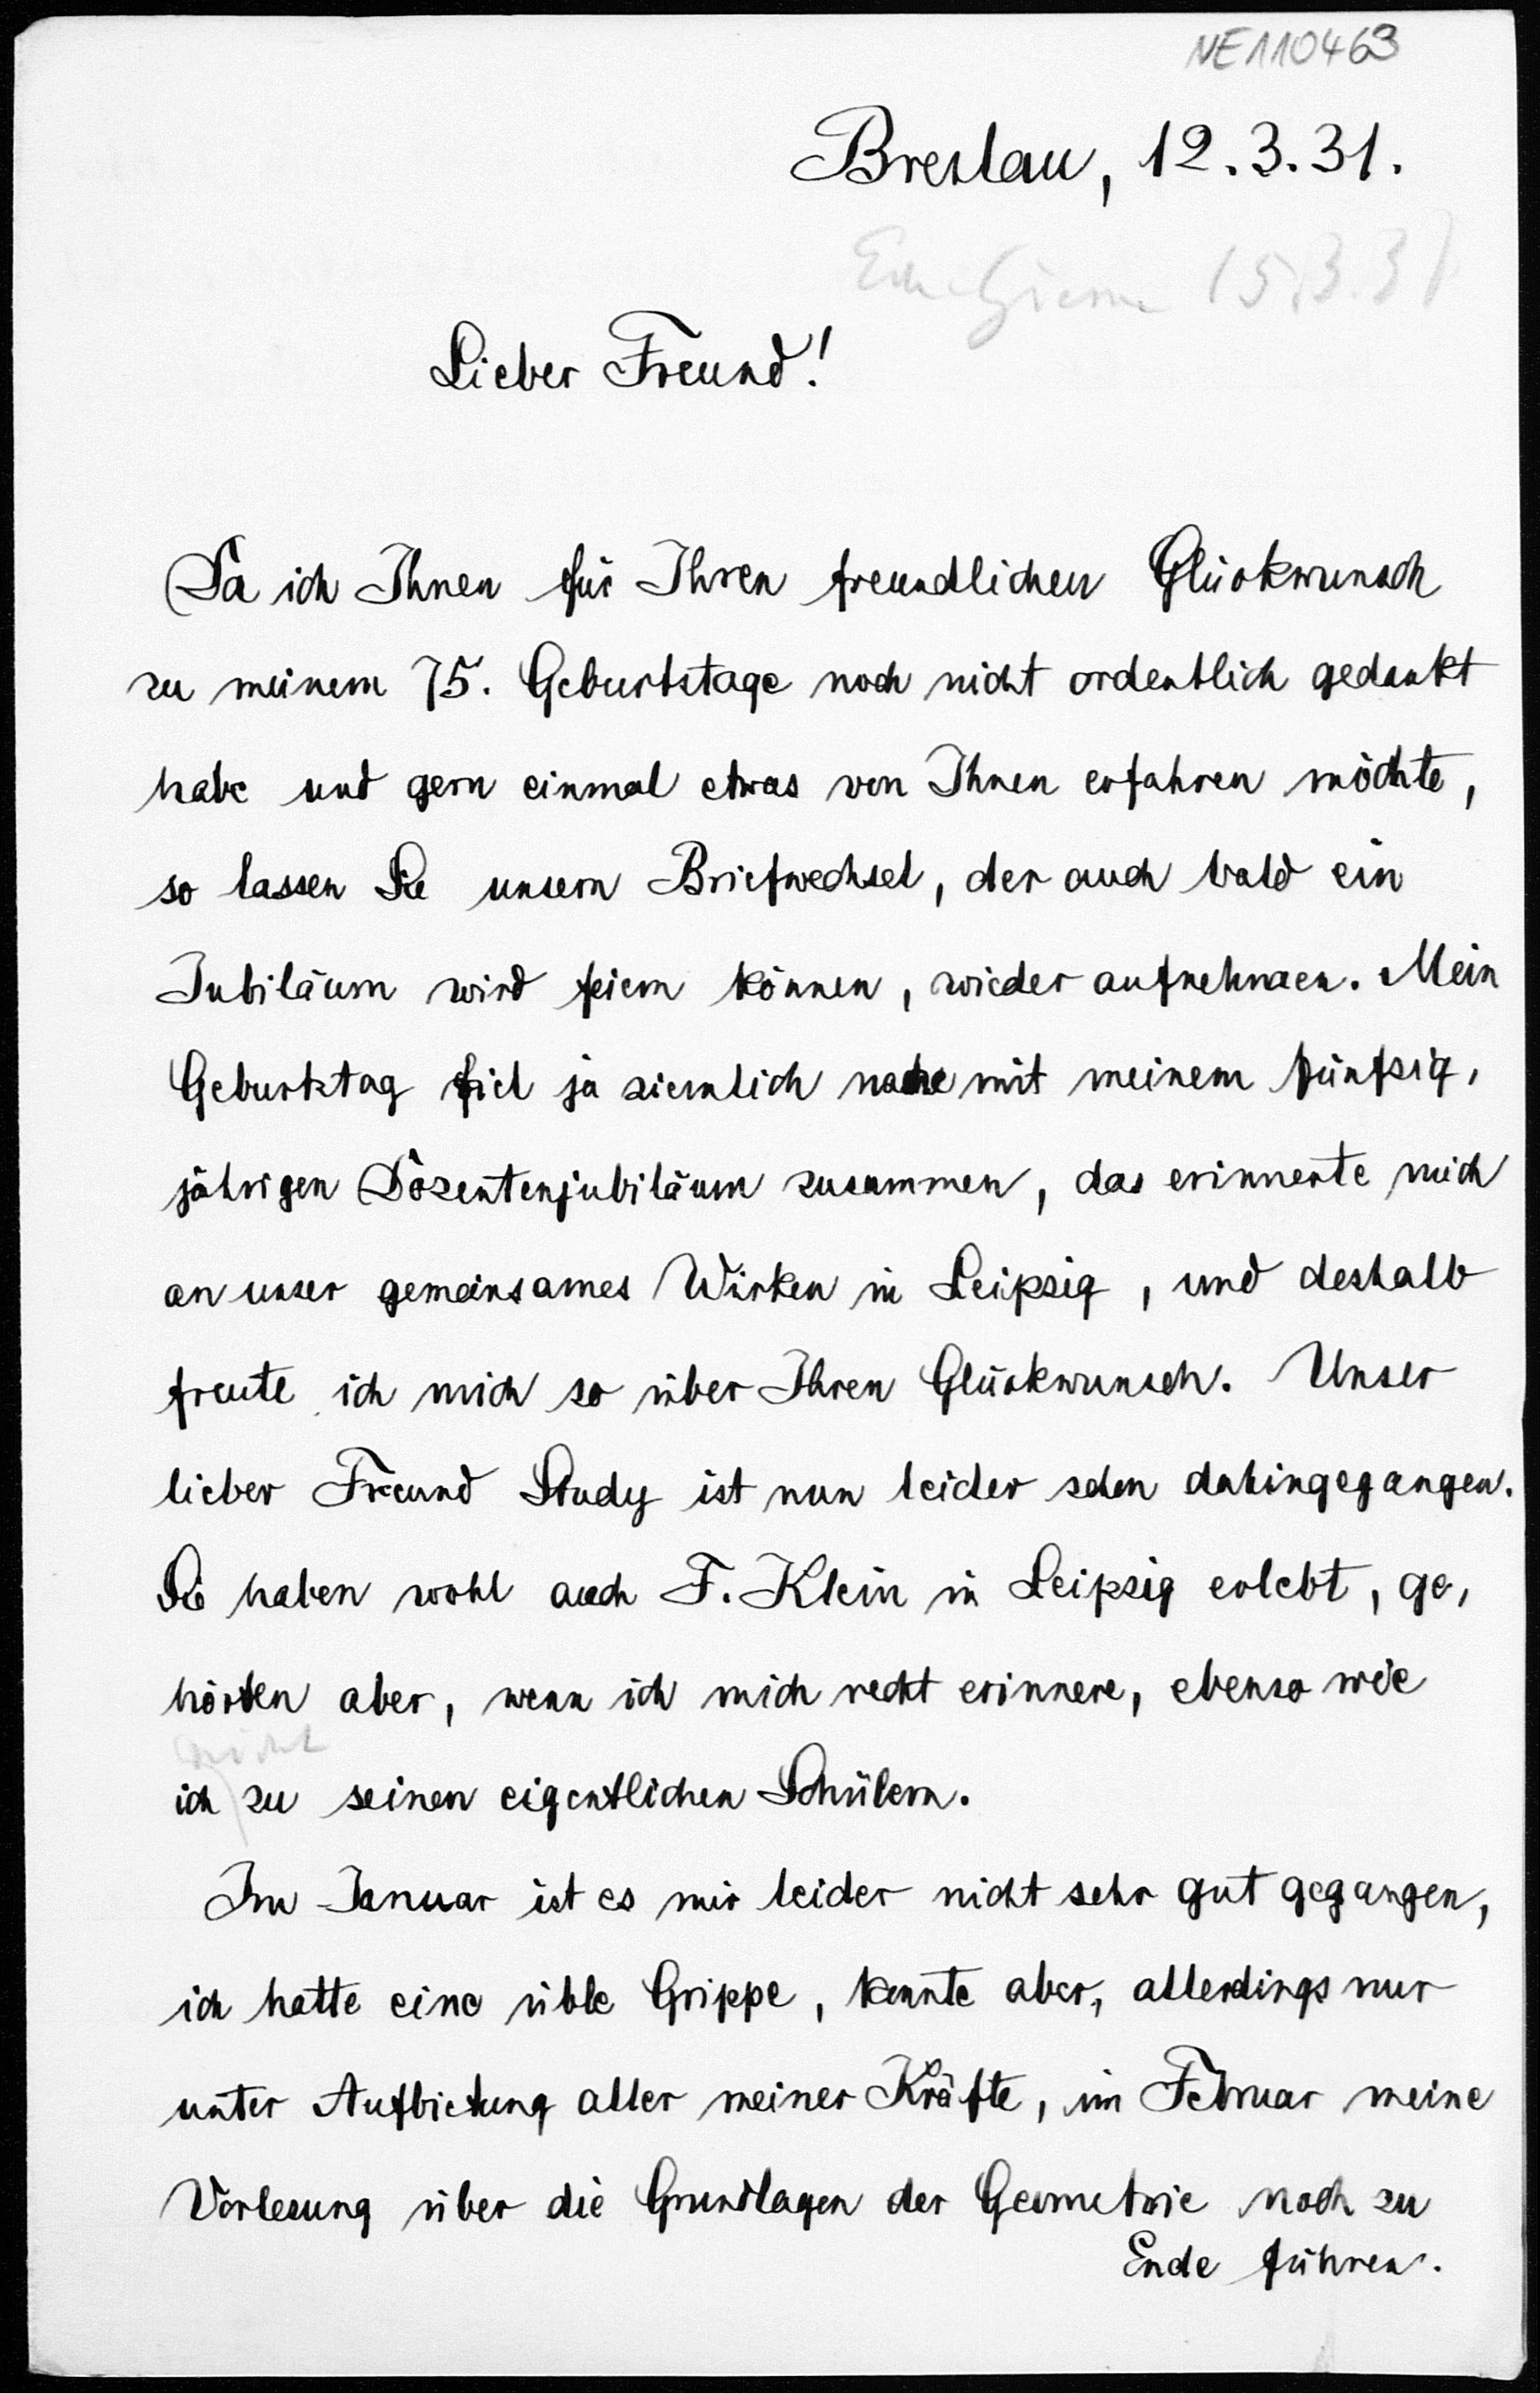 NE110463
Breslau, 12.3.31.
15.3.31
Lieber Freund!
Da ich Ihnen für Ihren freundlichen Glückwunsch
zu meinem 75. Geburtstage noch nicht ordentlich gedankt
habe und gern einmal etwas von Ihnen erfahren möchte,
so lassen Sie unsern Briefwechsel, der auch bald ein
Jubiläum wird feiern können, wieder aufnehmen. Mein
Geburtstag fiel ja ziemlich nahe mit meinem fünfzig,
jährigen Dozentenjubiläum zusammen, das erinnerte mich
an unser gemeinsames Wirken in Leipzig, und deshalb
freute ich mich so über Ihren Glückwunsch. Unser
lieber Freund Study ist nun leider schon dahingegangen.
Sie haben wohl auch F. Klein in Leipzig erlebt, ge,
hörten aber, wenn ich mich recht erinnere, ebenso wie
nicht
ich zu seinen eigentlichen Schülern.
Im Januar ist es mir leider nicht sehr gut gegangen,
ich hatte eine üble Grippe, konnte aber, allerdings nur
unter Aufbietung aller meiner Kräfte, im Februar meine
Vorlesung über die Grundlagen der Geometrie noch zu
Ende führen.